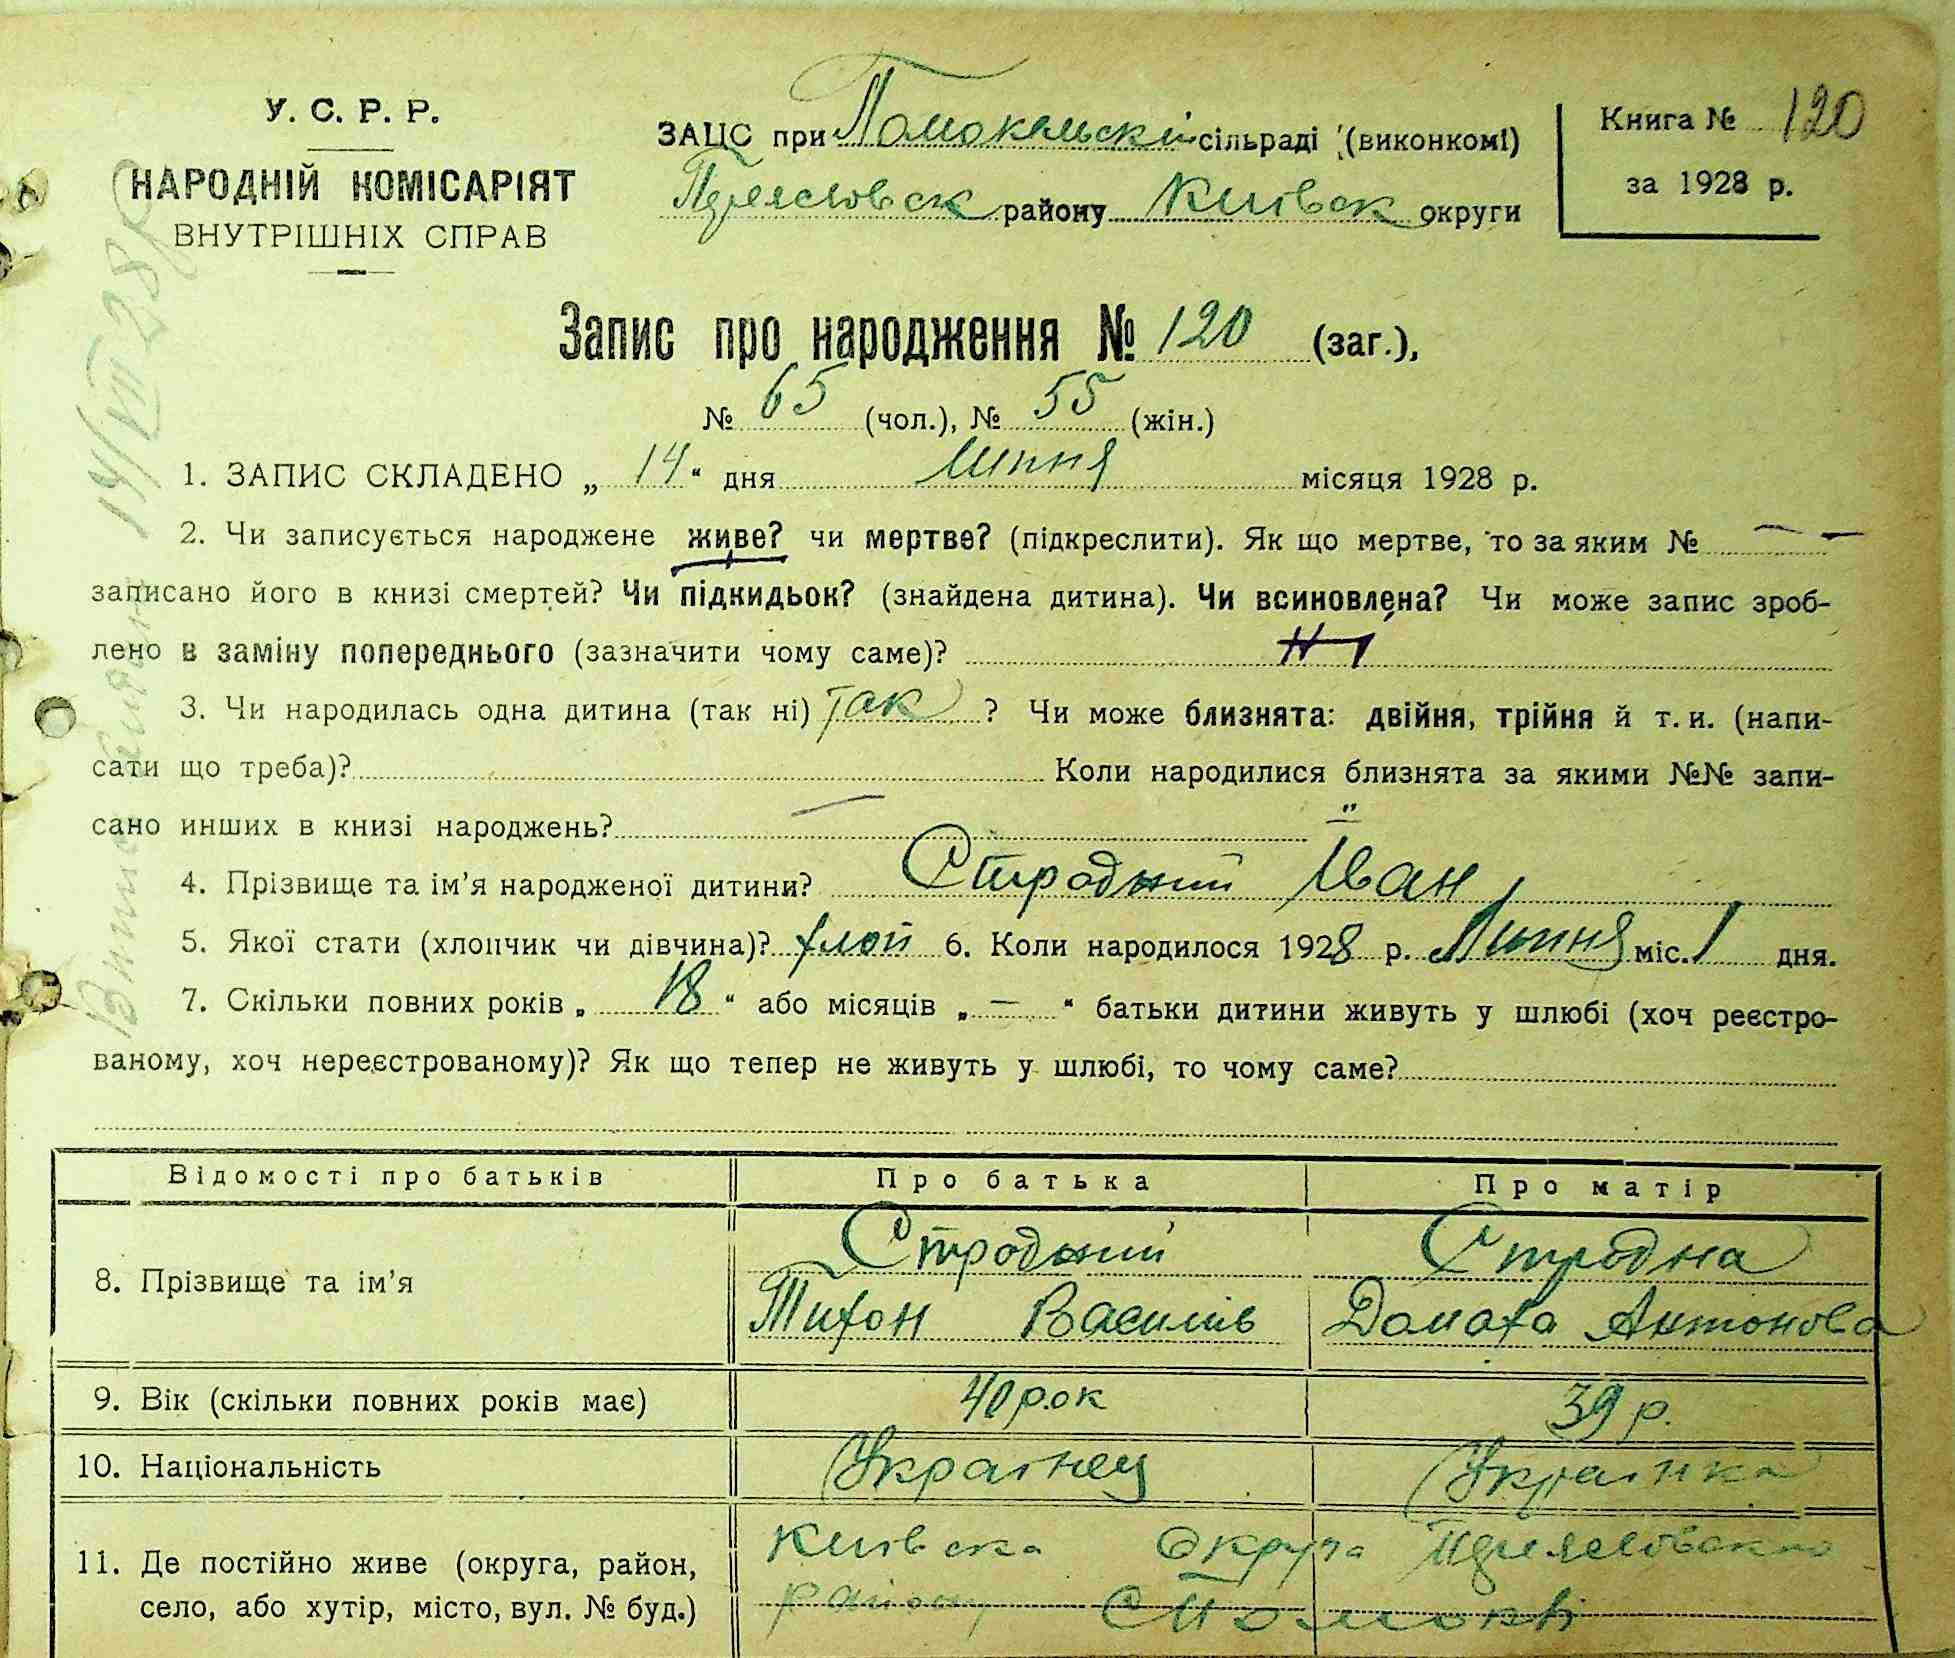 У. С. Р. Р.
НАРОДНІЙ КОМІСАРІЯТ
ВНУТРІШНІХ СПРАВ
ЗАЦС при Помокельскі сільраді (виконкомі)
району Київск округи
Книга № 120
за 1928 р.
Запис про народження № 120 (заг.),
№ 65 (чол.), № 55 (жін.)
1. ЗАПИС СКЛАДЕНО „ 14 “ дня липня місяця 1928 р.
2. Чи записується народжене живе? чи мертве? (підкреслити). Як що мертве, то за яким № —
записано його в книзі смертей? Чи підкидьок? (знайдена дитина). Чи всиновлена? Чи може запис зроб-
лено в заміну попереднього (зазначити чому саме)? Ні
3. Чи народилась одна дитина (так ні) так ? Чи може близнята: двійня, трійня й т. и. (напи-
сати що треба)? Коли народилися близнята за якими №№ запи-
сано инших в книзі народжень? — "
4. Прізвище та ім’я народженої дитини? Стродний Іван
5. Якої стати (хлопчик чи дівчина)? хлоп 6. Коли народилося 1928 р. Липня міс. 1 дня.
7. Скільки повних років „ 18 “ або місяців „ — “ батьки дитини живуть у шлюбі (хоч реєстро-
ваному, хоч нереєстрованому)? Як що тепер не живуть у шлюбі, то чому саме?
Відомості про батьків Про батька Про матір
8. Прізвище та ім’я Стродний Стродна
Тихон Василів Домаха Антонова
9. Вік (скільки повних років має) 40 рок 39 р.
10. Національність Українец Українка
11. Де постійно живе (округа, район, Київска Округа
село, або хутір, місто, вул. № буд.) району